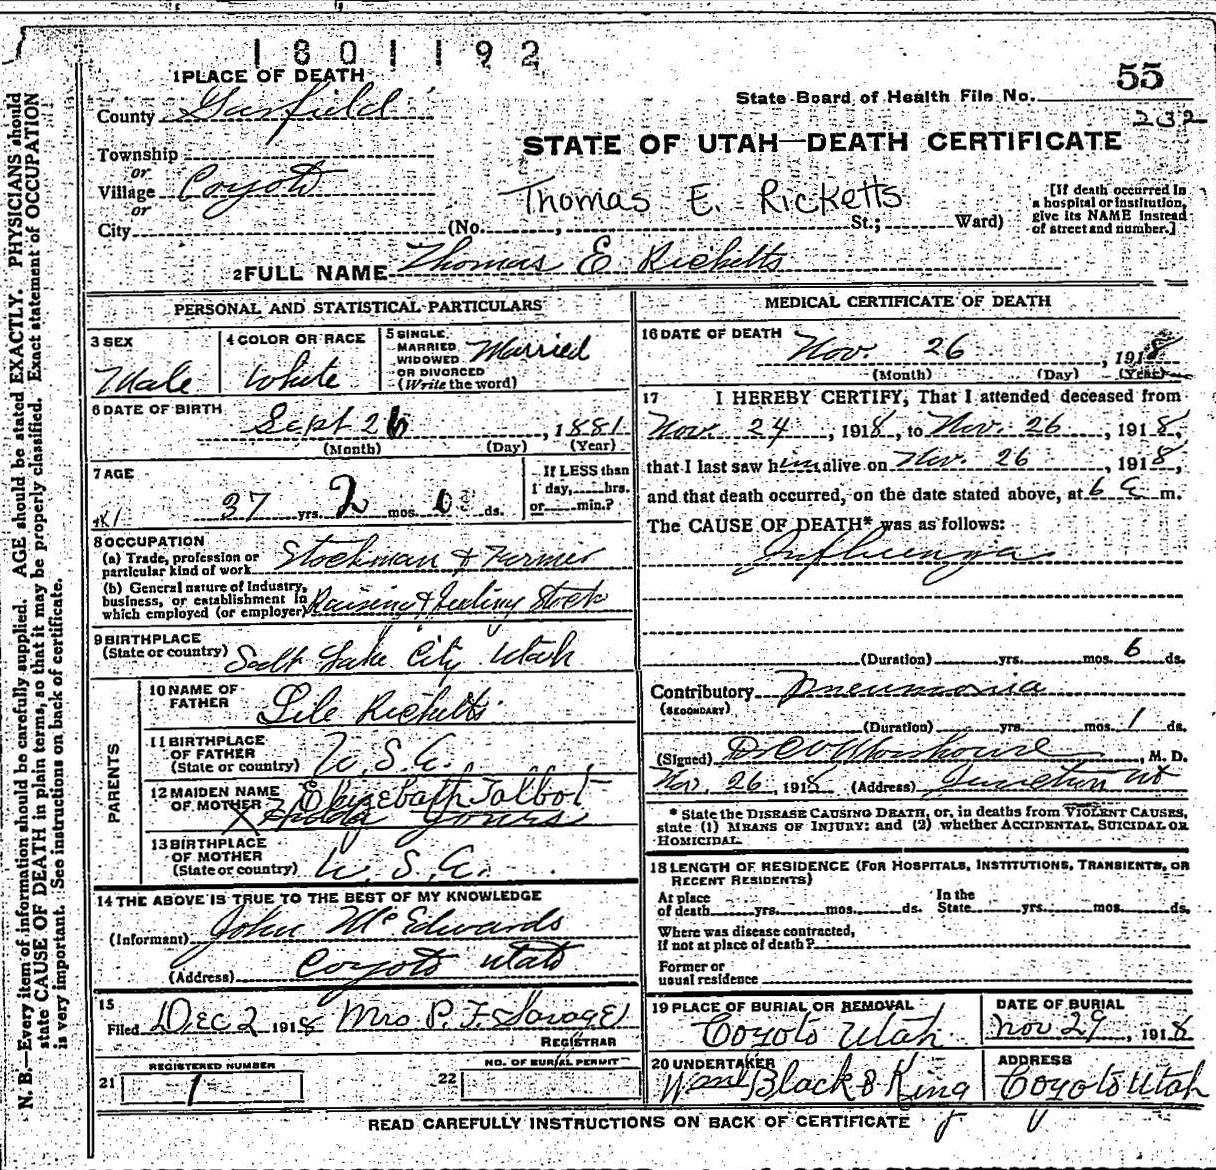 1801192
1 PLACE OF DEATH
55
State Board of Health File No.
232
County Garfield
STATE OF UTAH—DEATH CERTIFICATE
Township
or
Village Coyoto
or
City
Thomas E. Ricketts
(No. , St.; Ward)
[If death occurred in
a hospital or institution,
give its NAME instead
of street and number.]
2 FULL NAME Thomas E Ricketts
PERSONAL AND STATISTICAL PARTICULARS
3 SEX
Male
4 COLOR OR RACE
White
5 SINGLE
MARRIED,
WIDOWED
OR DIVORCED
(Write the word)
Married
6 DATE OF BIRTH
Sept 26, 1881
(Month) (Day) (Year)
7 AGE
37 yrs. 2 mos. 0 ds.
If LESS than
1 day, hrs.
or min.?
8 OCCUPATION
(a) Trade, profession or
particular kind of work Stockman & Farmer
(b) General nature of Industry,
business, or establishment in
which employed (or employer) Raising & Feeding Stock
9 BIRTHPLACE
(State or country) Salt Lake City Utah
PARENTS
10 NAME OF
FATHER Lile Ricketts
11 BIRTHPLACE
OF FATHER
(State or country) U. S. A.
12 MAIDEN NAME
OF MOTHER Elizebath Talbot
X
13 BIRTHPLACE
OF MOTHER
(State or country) U. S. A.
14 THE ABOVE IS TRUE TO THE BEST OF MY KNOWLEDGE
(Informant) John Mc Edwards
(Address) Coyoto Utah
15
Filed Dec 2 1918 Mrs P. F. Savage
REGISTRAR
21 REGISTERED NUMBER
1
22 NO. OF BURIAL PERMIT
MEDICAL CERTIFICATE OF DEATH
16 DATE OF DEATH
Nov. 26, 1918
(Month) (Day) (Year)
17 I HEREBY CERTIFY, That I attended deceased from
Nov. 24, 1918, to Nov. 26, 1918,
that I last saw him alive on Nov. 26, 1918,
and that death occurred, on the date stated above, at 6 a m.
The CAUSE OF DEATH* was as follows:
Influenza
(Duration) yrs. mos. 6 ds.
Contributory Pneumonia
(SECONDARY)
(Duration) yrs. mos. 1 ds.
(Signed) , M. D.
Nov. 26, 1918 (Address) Junction Ut
* State the DISEASE CAUSING DEATH, or, in deaths from VIOLENT CAUSES,
state (1) MEANS OF INJURY; and (2) whether ACCIDENTAL, SUICIDAL OR
HOMICIDAL.
18 LENGTH OF RESIDENCE (FOR HOSPITALS, INSTITUTIONS, TRANSIENTS, OR
RECENT RESIDENTS)
At place
of death yrs. mos. ds. In the
State yrs. mos. ds.
Where was disease contracted,
if not at place of death?
Former or
usual residence
19 PLACE OF BURIAL OR REMOVAL
Coyoto Utah
DATE OF BURIAL
Nov 29, 1918
20 UNDERTAKER
Black & King
ADDRESS
Coyoto Utah
READ CAREFULLY INSTRUCTIONS ON BACK OF CERTIFICATE
N. B.—Every item of information should be carefully supplied. AGE should be stated EXACTLY. PHYSICIANS should
state CAUSE OF DEATH in plain terms, so that it may be properly classified. Exact statement of OCCUPATION
is very important. See instructions on back of certificate.